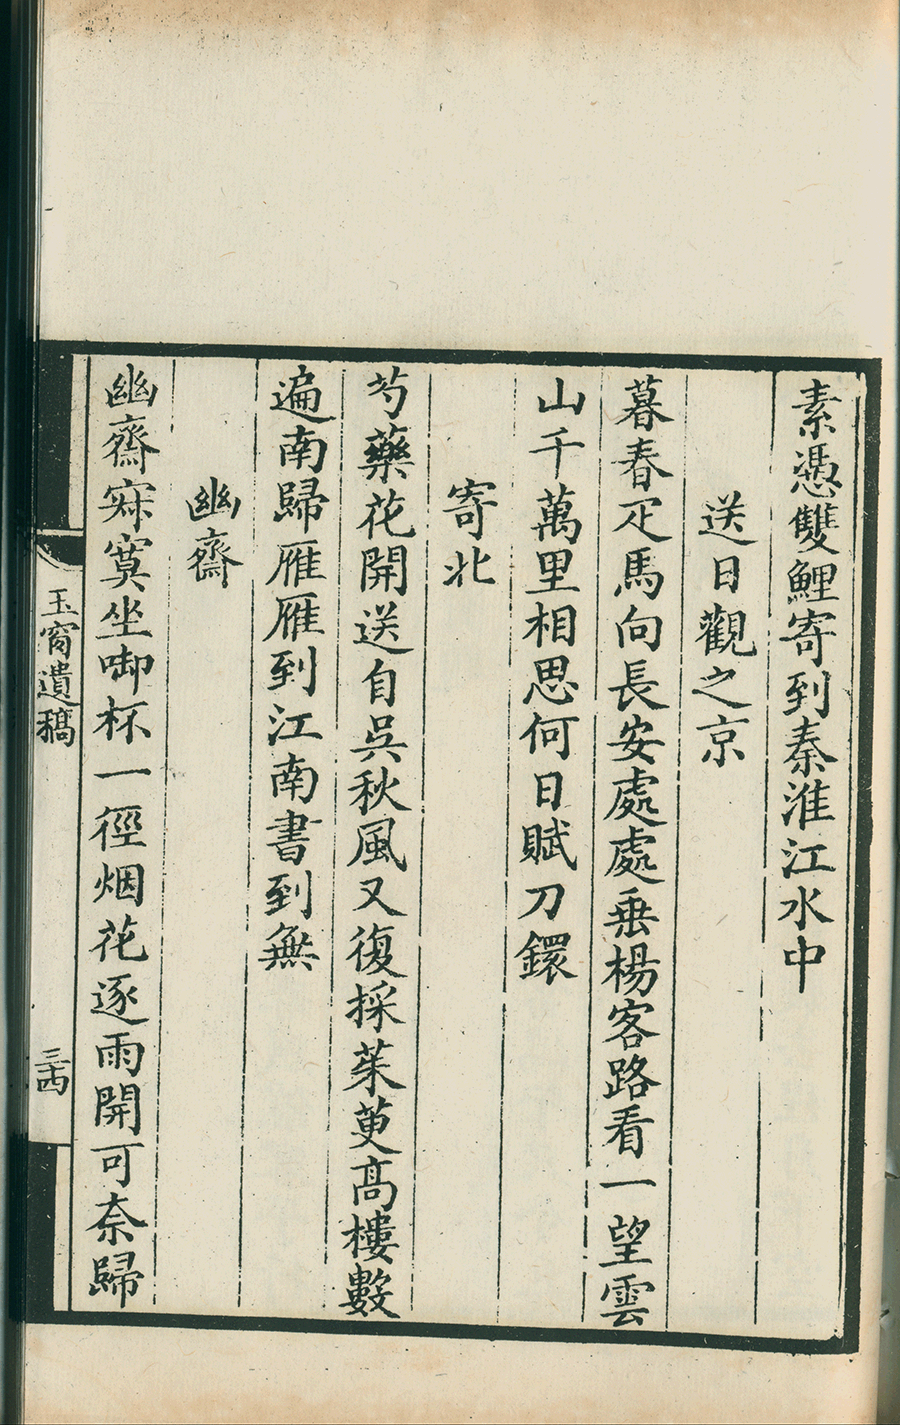 素憑雙鯉寄到秦淮江水中
送日觀之京
暮春疋馬向長安處處垂楊客路看一望雲
山千萬里相思何日賦刀鐶
寄北
芍藥花開送自吳秋風又復採茱萸高樓數
遍南歸雁雁到江南書到無
幽齋
幽齋寂寞坐啣杯一徑烟花逐雨開可奈歸
玉窗遺稿
三四